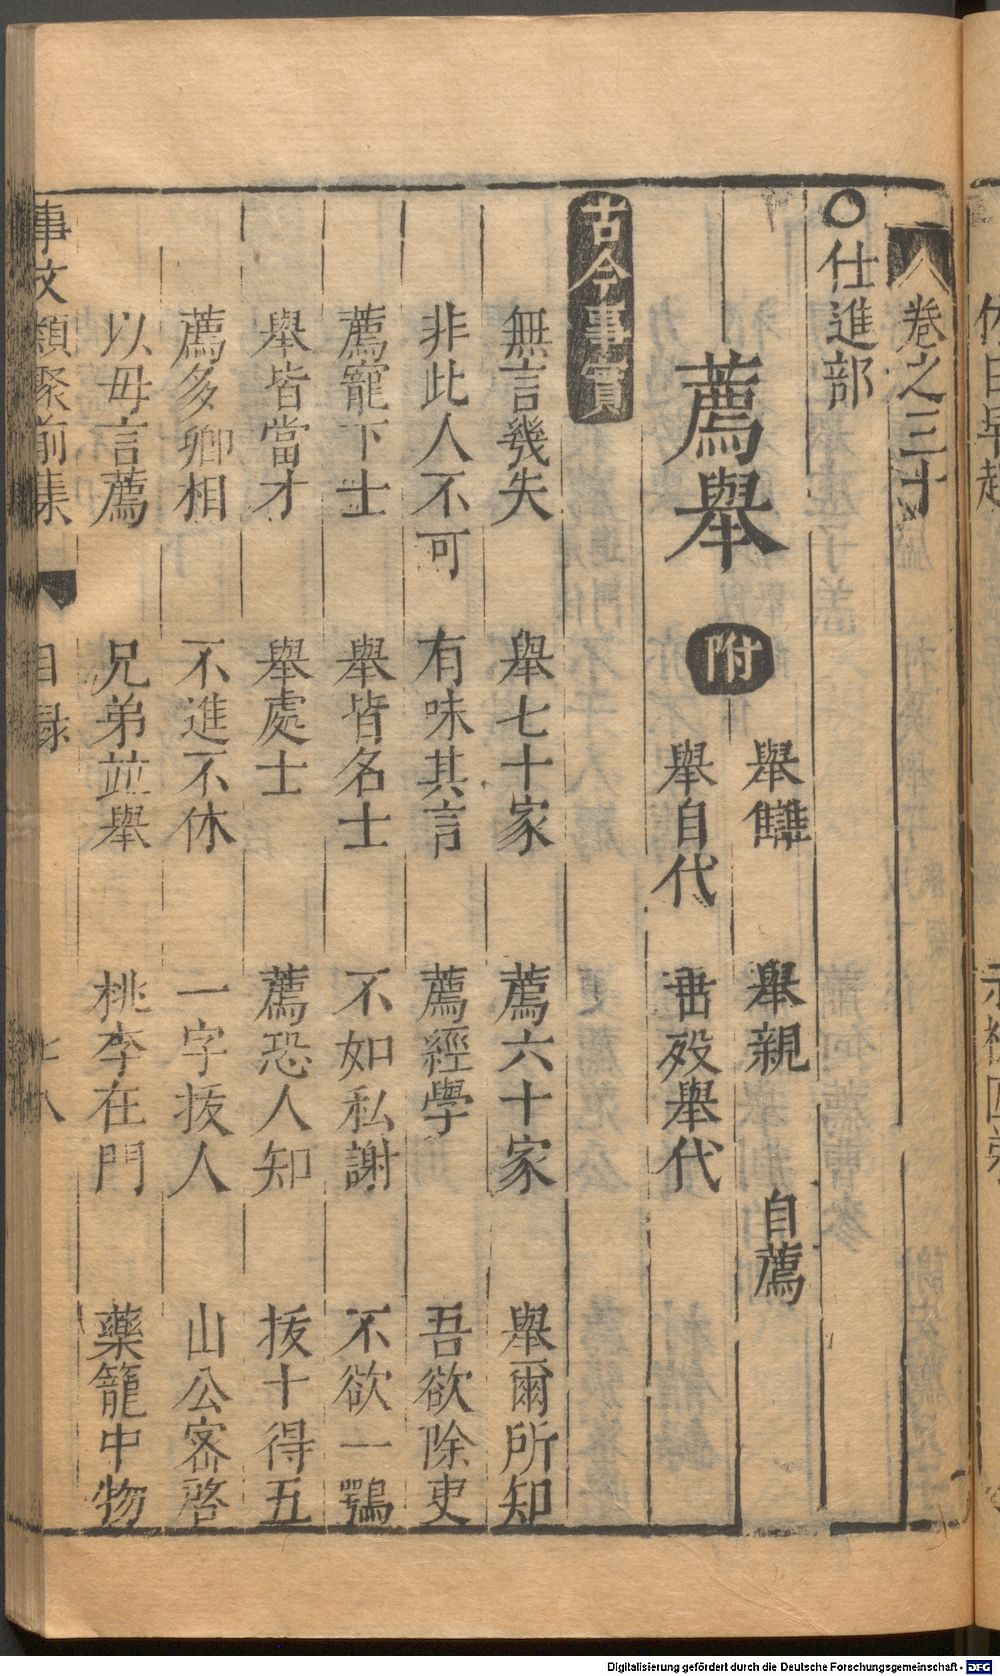 卷之三十
○仕進部
薦舉 附 舉讎 舉親 自薦
舉自代 垂歿舉代
古今事實
無言幾失 舉七十家 薦六十家 舉爾所知
非此人不可 有味其言 薦經學 吾欲除吏
薦寵下士 舉皆名士 不如私謝 不欲一鶚
舉皆當才 舉處士 薦恐人知 拔十得五
薦多卿相 不進不休 一字拔人 山公密啓
以毋言薦 兄弟並舉 桃李在門 藥籠中物
事文類聚前集 目録
Digitalisierung gefördert durch die Deutsche Forschungsgemeinschaft - DFG